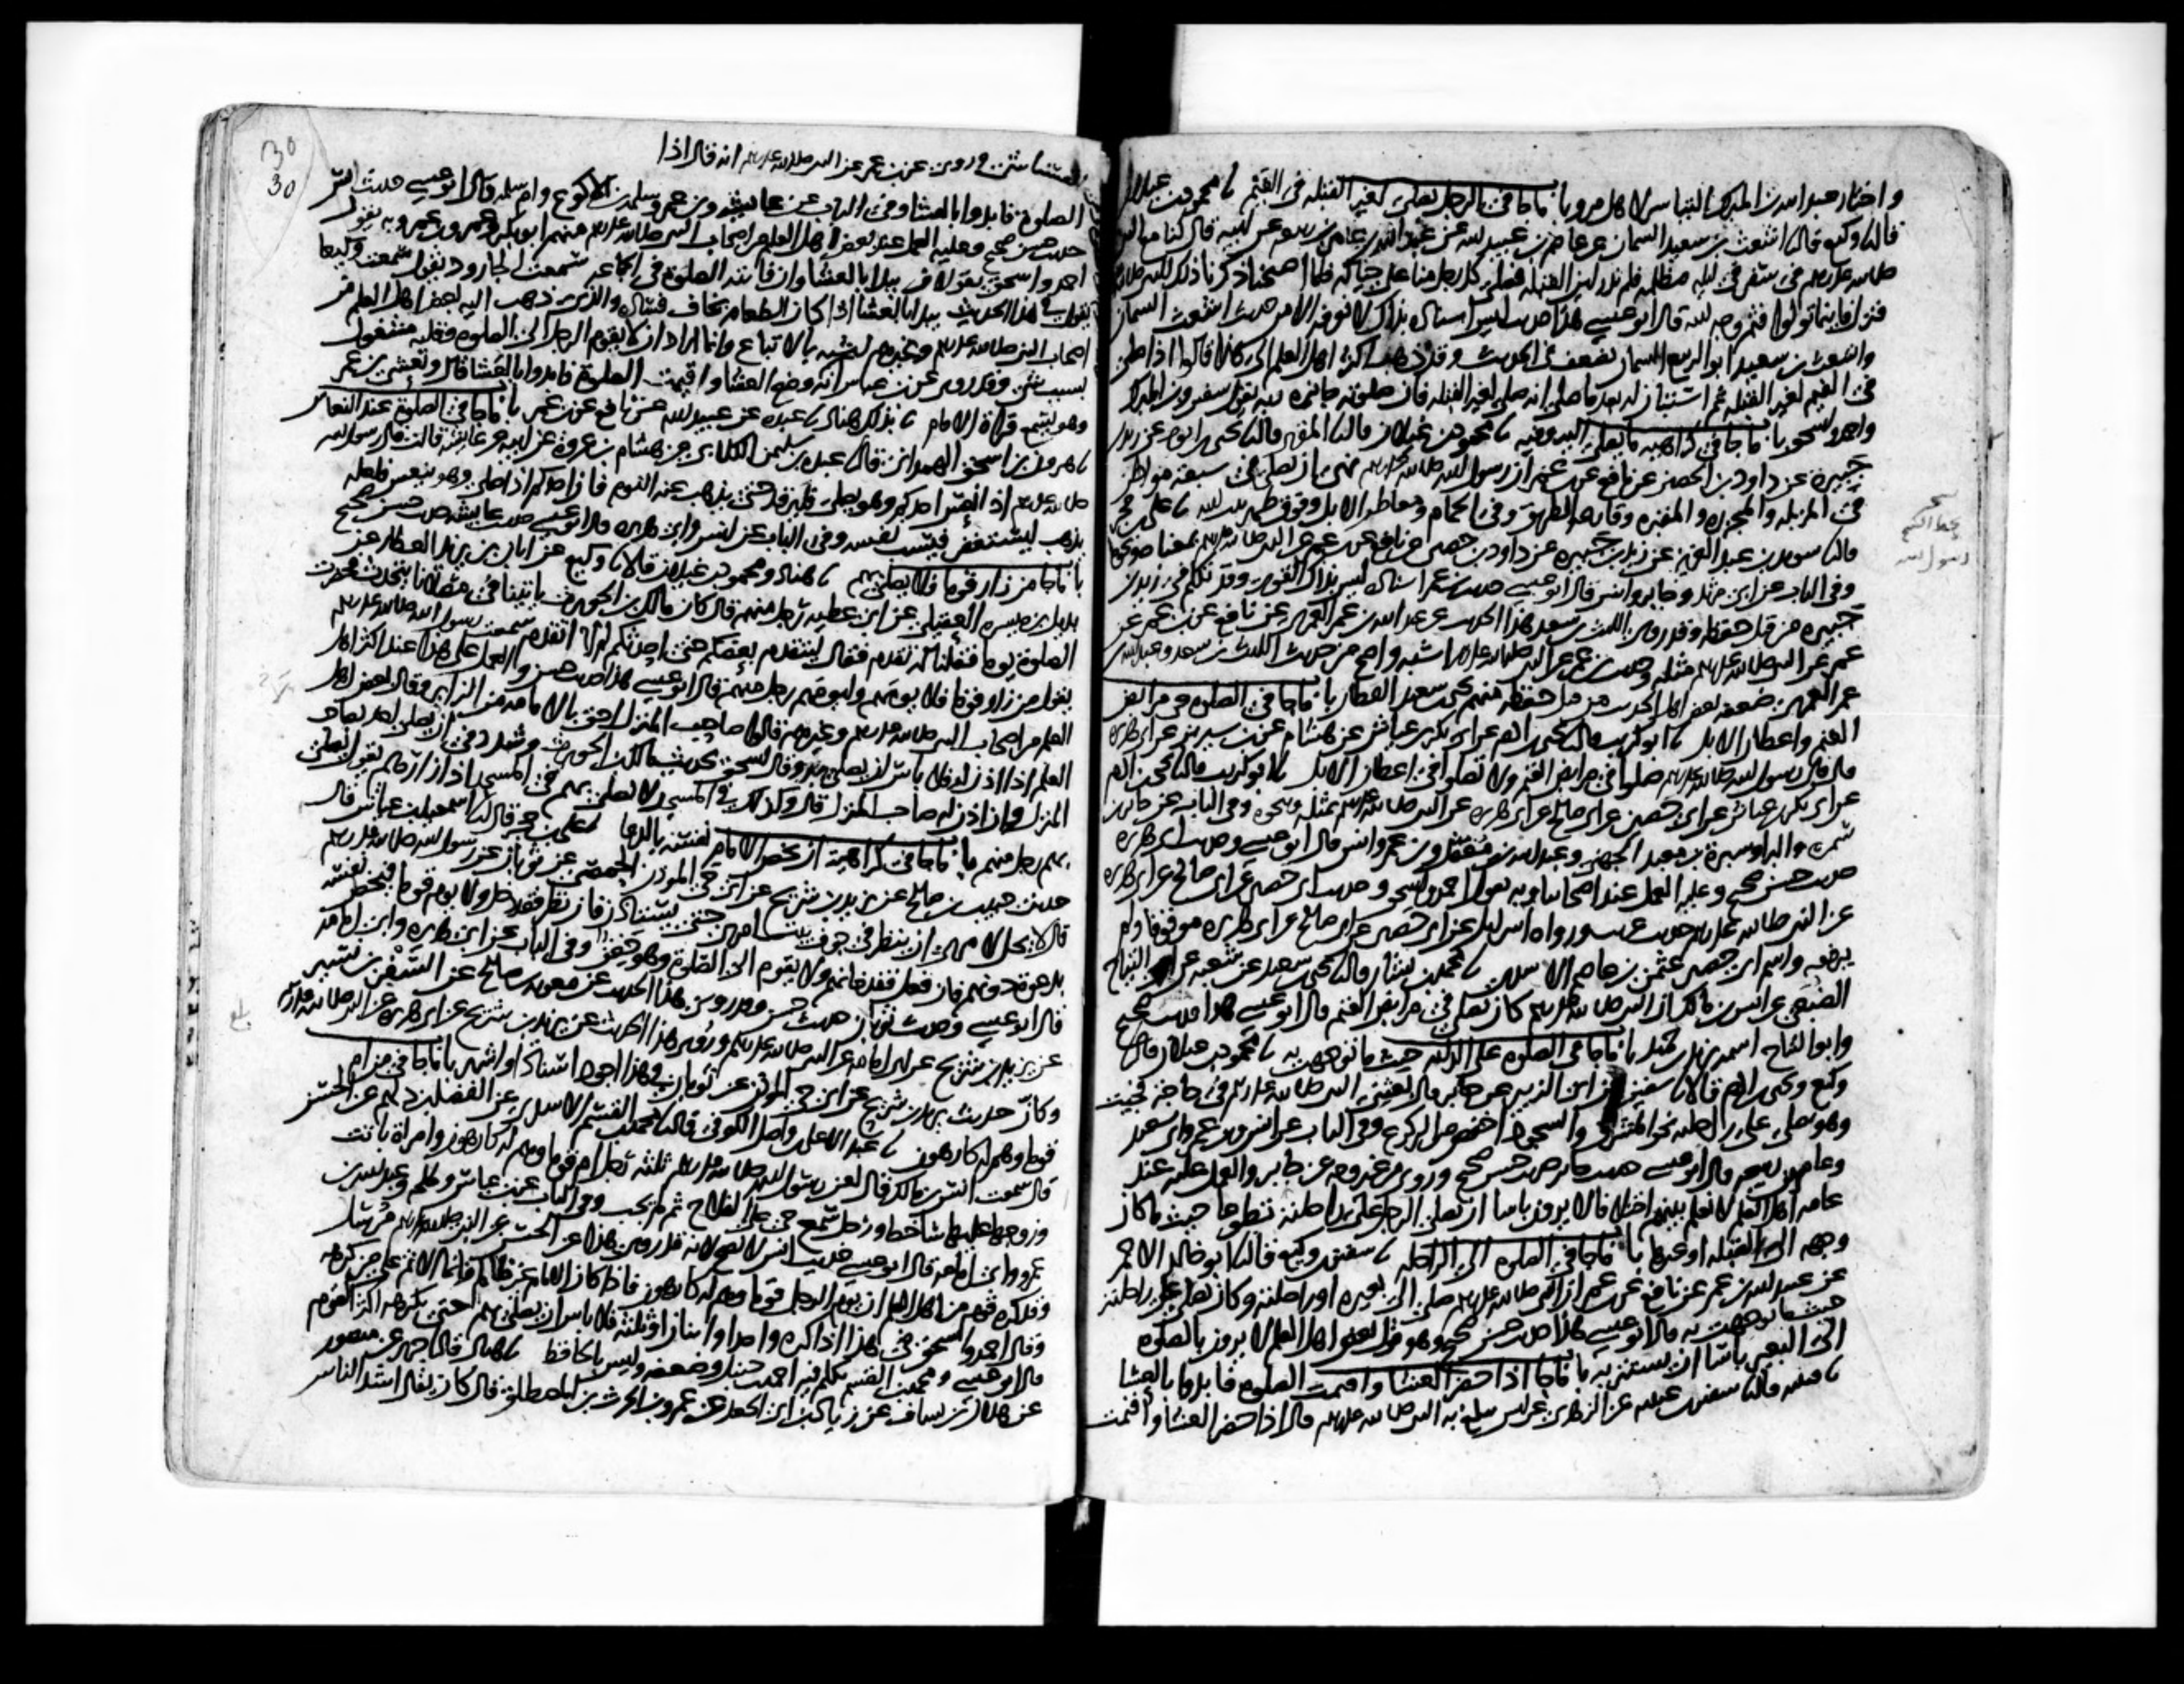 واختار عبد الله بن المبارك التياسر لاهل مرو باب ما جا في الرجل يصلي لغير القبله في الغيم نا محمود بن غيلان
قال نا وكيع قال نا اشعث بن سعيد السمان عن عاصم بن عبيد الله عن عبد الله بن عامر بن ربيعه عن ابيه قال كنا مع النبي
صلى الله عليه وسلم في سفر في ليله مظلمه فلم ندر اين القبله فصلى كل رجل منا على حياله فلما اصبحنا ذكرنا ذلك للنبي صلى الله عليه
فنزل فاينما تولوا فثم وجه الله قال ابو عيسى هذا حديث ليس اسناده بذاك لا نعرفه الا من حديث اشعث السمان
واشعث بن سعيد ابو الربيع السمان يضعف في الحديث وقد ذهب اكثر اهل العلم الى هذا قالوا اذا صلى
في الغيم لغير القبله ثم استبان له بعد ما صلى انه صلى لغير القبله فان صلوته جائزه وبه يقول سفين وابن المبارك
واحمد واسحق باب ما جا في كراهيه ما يصلى اليه وفيه نا محمود بن غيلان قال نا المقري قال نا يحيى بن ايوب عن زيد بن
جبيرة عن داود بن الحصين عن نافع عن ابن عمر ان رسول الله صلى الله عليه وسلم نهى ان يصلى في سبعة مواطن
في المزبله والمجزره والمقبره وقارعه الطريق وفي الحمام ومعاطن الابل وفوق ظهر بيت الله نا علي بن حجر
قال نا سويد بن عبد العزيز عن زيد بن جبيره عن داود بن حصين عن نافع عن ابن عمر عن النبي صلى الله عليه وسلم بمعناه ونحوه
وفي الباب عن ابي مرثد وجابر وانس قال ابو عيسى حديث ابن عمر اسناده ليس بذاك القوي وقد تكلم في زيد بن
جبيره من قبل حفظه وقد روى الليث بن سعد هذا الحديث عن عبد الله بن عمر العمري عن نافع عن ابن عمر عن
عمر عن النبي صلى الله عليه وسلم مثله وحديث ابن عمر عن النبي صلى الله عليه وسلم اشبه واصح من حديث الليث بن سعد وعبد الله بن
عمر العمري ضعفه بعض اهل الحديث من قبل حفظه منهم يحيى بن سعيد القطان باب ما جا في الصلوه في مرابض
الغنم واعطان الابل نا ابو كريب قال نا يحيى بن ادم عن ابي بكر بن عياش عن هشام عن ابن سيرين عن ابي هريره
قال قال رسول الله صلى الله عليه وسلم صلوا في مرابض الغنم ولا تصلوا في اعطان الابل نا ابو كريب قال نا يحيى بن ادم
عن ابي بكر بن عياش عن ابي حصين عن ابي صالح عن ابي هريره عن النبي صلى الله عليه وسلم بمثله ونحوه وفي الباب عن جابر بن
سمره والبرا وسبرة بن معبد الجهني وعبد الله بن مغفل وابن عمر وانس قال ابو عيسى وحديث ابي هريره
حديث حسن صحيح وعليه العمل عند اصحابنا وبه يقول احمد واسحق وحديث ابي حصين عن ابي صالح عن ابي هريره
عن النبي صلى الله عليه وسلم حديث غريب ورواه اسرايل عن ابي حصين عن ابي صالح عن ابي هريره موقوفا ولم
يرفعه واسم ابي حصين عثمن بن عاصم الاسدي نا محمد بن بشار قال نا يحيى بن سعيد عن شعبه عن ابي التياح
الضبعي عن انس بن مالك ان النبي صلى الله عليه وسلم كان يصلي في مرابض الغنم قال ابو عيسى هذا حديث صحيح
وابو التياح اسمه يزيد بن حميد باب ما جا في الصلوه على الدابه حيث ما توجهت به نا محمود بن غيلان قال نا
وكيع ويحيى بن ادم قالا نا سفين عن ابي الزبير عن جابر قال بعثني النبي صلى الله عليه وسلم في حاجة فجيت
وهو يصلي على راحلته نحو المشرق والسجود اخفض من الركوع وفي الباب عن انس وابن عمر وابي سعيد
وعامر بن ربيعه قال ابو عيسى حديث جابر حديث حسن صحيح وروي من غير وجه عن جابر والعمل عليه عند
عامه اهل العلم لا نعلم بينهم اختلافا لا يرون باسا ان يصلي الرجل على راحلته تطوعا حيث ما كان
وجهه الى القبله او غيرها باب ما جا في الصلوه الى الراحله نا سفين بن وكيع قال نا ابو خالد الاحمر
عن عبيد الله بن عمر عن نافع عن ابن عمر ان النبي صلى الله عليه وسلم صلى الى بعيره او راحلته وكان يصلي على راحلته
حيث ما توجهت به قال ابو عيسى هذا حديث حسن صحيح وهو قول بعض اهل العلم لا يرون بالصلوه
الى البعير باسا ان يستتر به باب ما جا اذا حضر العشا واقيمت الصلوه فابدوا بالعشا
نا قتيبه قال نا سفين بن عيينه عن الزهري عن انس يبلغ به النبي صلى الله عليه وسلم قال اذا حضر العشا واقيمت
رسول الله
30
30
انه قال اذا
الصلوة فابدوا بالعشا وفي الباب عن عايشه وابن عمر وسلمه بن الاكوع وام سلمه قال ابو عيسى حديث انس
حديث حسن صحيح وعليه العمل عند بعض اهل العلم من اصحاب النبي صلى الله عليه وسلم منهم ابو بكر وعمر وابن عمر وبه يقول
احمد واسحق يقولان يبدا بالعشا وان فاتته الصلوة في الجماعه سمعت الجارود يقول سمعت وكيعا
يقول في هذا الحديث يبدا بالعشا اذا كان الطعام يخاف فساده والذي ذهب اليه بعض اهل العلم من
اصحاب النبي صلى الله عليه وسلم وغيرهم اشبه بالاتباع وانما ارادوا ان لا يقوم الرجل الى الصلوه وقلبه مشغول
بسبب شي وقد روي عن ابن عباس انه
وضع العشا واقيمت الصلوة فابدوا بالعشا قال وتعشى ابن عمر
وهو يسمع قراة الامام نا بذلك هناد نا عبده عن عبيد الله عن نافع عن ابن عمر باب ما جا في الصلوة عند النعاس
نا هرون بن اسحق الهمداني قال نا عبده بن سليمن الكلابي عن هشام بن عروة عن ابيه عن عايشه قالت قال رسول الله
صلى الله عليه وسلم اذا نعس احدكم وهو يصلي فليرقد حتى يذهب عنه النوم فان احدكم اذا صلى وهو ينعس فلعله
يذهب ليستغفر فيسب نفسه وفي الباب عن انس وابي هريره قال ابو عيسى حديث عايشه حديث حسن صحيح
باب ما جا من زار قوما فلا يصلي بهم نا هناد ومحمود بن غيلان قالا نا وكيع عن ابان بن يزيد العطار عن
بديل بن ميسره العقيلي عن ابي عطيه رجل منهم قال كان مالك بن الحويرث ياتينا في مصلانا يتحدث فحضرت
الصلوة يوما فقلنا له تقدم فقال ليتقدم بعضكم حتى احدثكم لم لا اتقدم سمعت رسول الله صلى الله عليه وسلم
يقول من زار قوما فلا يؤمهم وليؤمهم رجل منهم قال ابو عيسى هذا حديث حسن والعمل على هذا عند اكثر اهل
العلم من اصحاب النبي صلى الله عليه وسلم وغيرهم قالوا صاحب المنزل احق بالامامه من الزاير وقال بعض اهل
العلم اذا اذن له فلا باس ان يصلي به وقال اسحق بحديث مالك بن الحويرث وشدد في ان لا يصلي احد بصاحب
المنزل وان اذن له صاحب المنزل قال وكذلك في المسجد لا يصلي بهم في المسجد اذا زارهم يقول ليصلي
بهم رجل منهم باب ما جا في كراهية ان يخص الامام نفسه بالدعا نا علي بن حجر قال نا اسمعيل بن عياش قال
حدثني حبيب بن صالح عن يزيد بن شريح عن ابي حي الموذن الحمصي عن ثوبان عن رسول الله صلى الله عليه وسلم
قال لا يحل لامرئ ان ينظر في جوف بيت امرئ حتى يستاذن فان نظر فقد دخل ولا يوم قوما فيخص نفسه
بدعوة دونهم فان فعل فقد خانهم ولا يقوم الى الصلوة وهو حقن وفي الباب عن ابي هريره وابي امامة
قال ابو عيسى وحديث ثوبان حديث حسن وقد روي هذا الحديث عن معويه بن صالح عن السفر بن نسير
عن يزيد بن شريح عن ابي امامه عن النبي صلى الله عليه وسلم وروي هذا الحديث عن يزيد بن شريح عن ابي هريره عن النبي صلى الله عليه وسلم
وكان حديث يزيد بن شريح عن ابي حي الموذن عن ثوبان في هذا اجود اسنادا واشهر باب ما جا في من ام
قوما وهم له كارهون نا عبد الاعلى بن واصل الكوفي قال نا محمد بن القسم الاسدي عن الفضل بن دلهم عن الحسن
قال سمعت انس بن مالك قال لعن رسول الله صلى الله عليه وسلم ثلثه رجل ام قوما وهم له كارهون وامراة باتت
وزوجها عليها ساخط ورجل سمع حي على الفلاح ثم لم يجب وفي الباب عن ابن عباس وطلحه وعبد الله بن
عمرو وابي امامه قال ابو عيسى حديث انس لا يصح لانه قد روي هذا عن الحسن عن النبي صلى الله عليه وسلم مرسل
وقد كره قوم من اهل العلم ان يوم الرجل قوما وهم له كارهون فاذا كان الامام غير ظالم فانما الاثم على من كرهه
وقال احمد واسحق في هذا اذا كره واحد او اثنان او ثلثه فلا باس ان يصلي بهم حتى يكرهه اكثر القوم
قال ابو عيسى ومحمد بن القسم تكلم فيه احمد بن حنبل وضعفه وليس بالحافظ نا هناد قال نا جرير عن منصور
عن هلال بن يساف عن زياد بن ابي الجعد عن عمرو بن الحرث بن المصطلق قال كان يقال اشد الناس